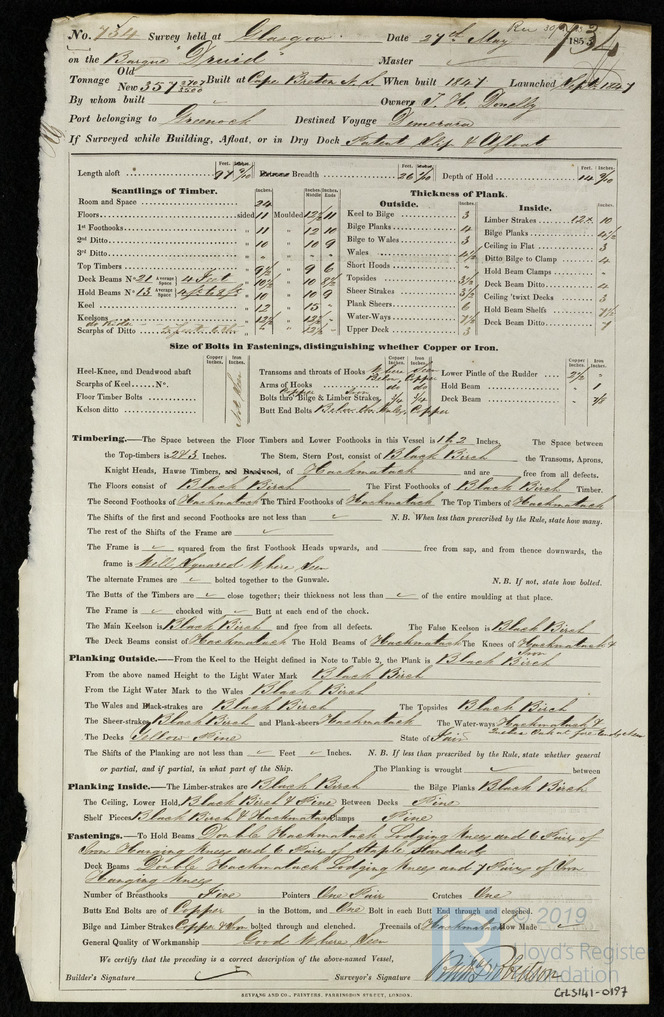 No. 734 Survey held at Glasgow Date 27th May 1853
on the Barque "Druid" Master
Tonnage Old New 357 2707/3500 Built at Cape Breton N.S. When built 1847 Launched Sept 1847
By whom built Owner J. H. Donelly
Port belonging to Greenock Destined Voyage Demerara
If Surveyed while Building, Afloat, or in Dry Dock Patent Slip & Afloat
Length aloft Feet. Inches. Breadth Feet. 26 Depth of Hold Feet. Inches. 14
Scantlings of Timber. Thickness of Plank.
Outside. Inside.
Room and Space 24
Floors sided 11 Moulded 12½ 11
1st Foothooks " 11 " 12 10
2nd Ditto " 10 " 10 9
3rd Ditto " " "
Top Timbers " 9½ " 9 6
Deck Beams No. 21 Average Space 4 feet " 10½ " 10
Hold Beams No. 13 Average Space " 10 " 10 9
Keel " 12 " 15
Keelsons " 12½ " 12½
Scarphs of Ditto
Keel to Bilge 3
Bilge Planks 4
Bilge to Wales 3
Wales 4½
Short Hoods
Topsides 3½
Sheer Strakes 3½
Plank Sheers 6
Water-Ways 7½
Upper Deck 3
Limber Strakes 10
Bilge Planks 4½
Ceiling in Flat 3
Ditto Bilge to Clamp 4
Hold Beam Clamps
Deck Beam Ditto 4
Ceiling 'twixt Decks 3
Hold Beam Shelfs 7½
Deck Beam Ditto 7
Size of Bolts in Fastenings, distinguishing whether Copper or Iron.
Copper Inches. Iron Inches. Copper Inches. Iron Inches. Copper Inches. Iron Inches.
Heel-Knee, and Deadwood abaft Not Seen
Scarphs of Keel No.
Floor Timber Bolts
Kelson ditto
Transoms and throats of Hooks Where Seen
Arms of Hooks do do
Bolts thro' Bilge & Limber Strakes
Butt End Bolts Below the Wales Copper
Lower Pintle of the Rudder 2½ "
Hold Beam " 1
Deck Beam " 7/8
Timbering.—The Space between the Floor Timbers and Lower Foothooks in this Vessel is 1 to 2 Inches. The Space between
the Top-timbers is 2 to 3 Inches. The Stem, Stern Post, consist of Black Birch the Transoms, Aprons,
Knight Heads, Hawse Timbers, and Deadwood, of Hackmatack and are free from all defects.
The Floors consist of Black Birch The First Foothooks of Black Birch Timber.
The Second Foothooks of Hackmatack The Third Foothooks of Hackmatack The Top Timbers of Hackmatack
The Shifts of the first and second Foothooks are not less than N.B. When less than prescribed by the Rule, state how many.
The rest of the Shifts of the Frame are
The Frame is squared from the first Foothook Heads upwards, and free from sap, and from thence downwards, the
frame is Well Squared Where Seen
The alternate Frames are bolted together to the Gunwale. N.B. If not, state how bolted.
The Butts of the Timbers are close together; their thickness not less than of the entire moulding at that place.
The Frame is chocked with Butt at each end of the chock.
The Main Keelson is Black Birch and free from all defects. The False Keelson is Black Birch
The Deck Beams consist of Hackmatack The Hold Beams of Hackmatack The Knees of Hackmatack & Iron
Planking Outside.—From the Keel to the Height defined in Note to Table 2, the Plank is Black Birch
From the above named Height to the Light Water Mark Black Birch
From the Light Water Mark to the Wales Black Birch
The Wales and Black-strakes are Black Birch The Topsides Black Birch
The Sheer-strakes Black Birch and Plank-sheers Hackmatack The Water-ways Hackmatack &
The Decks Yellow Pine State of Fair
The Shifts of the Planking are not less than Feet Inches. N.B. If less than prescribed by the Rule, state whether general
or partial, and if partial, in what part of the Ship. The Planking is wrought between
Planking Inside.—The Limber-strakes are Black Birch the Bilge Planks Black Birch
The Ceiling, Lower Hold, Black Birch & Pine Between Decks Pine
Shelf Pieces Black Birch & Hackmatack Clamps Pine
Fastenings.—To Hold Beams Double Hackmatack Lodging Knees and 6 Pairs of
Iron Hanging Knees and 6 Pairs of Staple Standards
Deck Beams Double Hackmatack Lodging Knees and 7 Pairs of Iron
Hanging Knees
Number of Breasthooks Five Pointers One Pair Crutches One
Butts End Bolts are of Copper in the Bottom, and One Bolt in each Butt End through and clenched.
Bilge and Limber Strakes Copper & Iron bolted through and clenched. Treenails of Hackmatack How Made
General Quality of Workmanship Good Where Seen
We certify that the preceding is a correct description of the above-named Vessel,
Builder's Signature Surveyor's Signature
REYPANS AND CO., PRINTERS, FARRINGDON STREET, LONDON.
© 2019
Lloyd's Register
Foundation
GLS141-0197